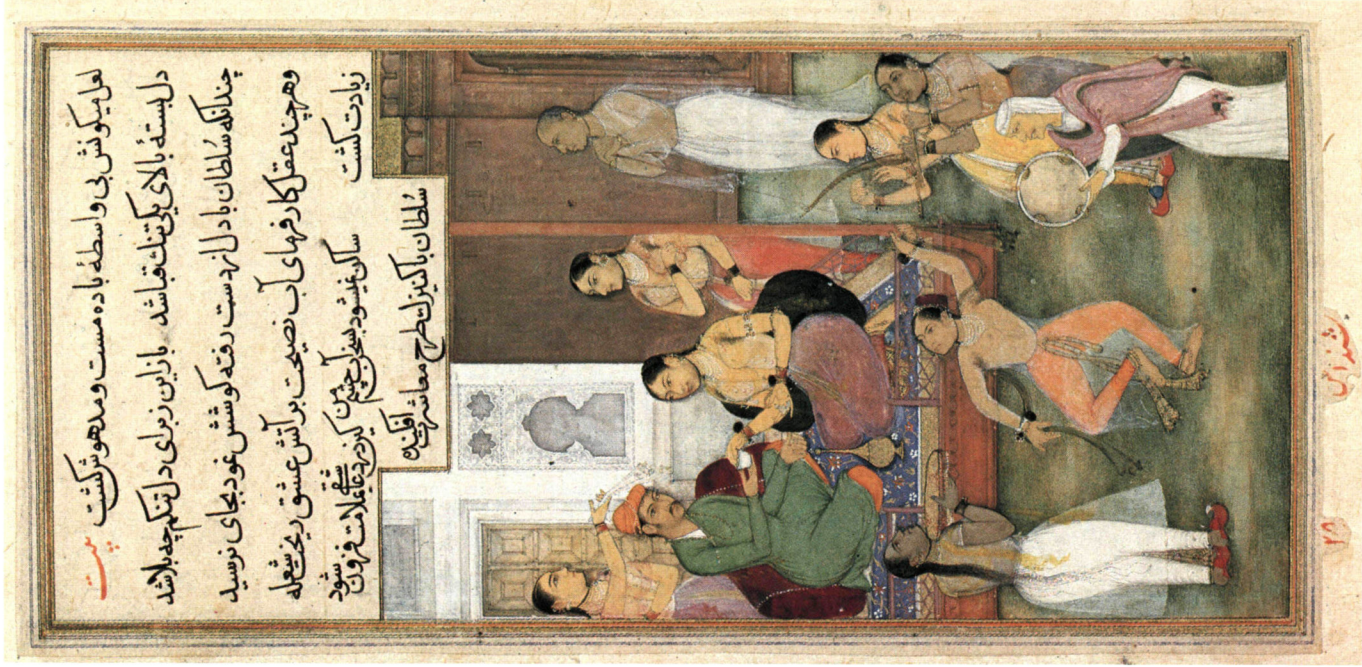 لعل میگونش بی واسطهٔ باده مست و مدهوش گشت بیت
دل بستهٔ بالای یکی تنک قبا شد باز این زبرای دل تنکم چه بلا شد
چندانکه سلطان با دل از دست رفته کوشش نمود بجای نرسید
و هر چند عقل کار فرمای آب نصیحت بر آتش عشق ریخت شعله
زیادت گشت ساکن نمیشود آب چشم من کین درد عاشقی بملامت فزون شود
سلطان با کنیزک طرح معاشرت افکنده